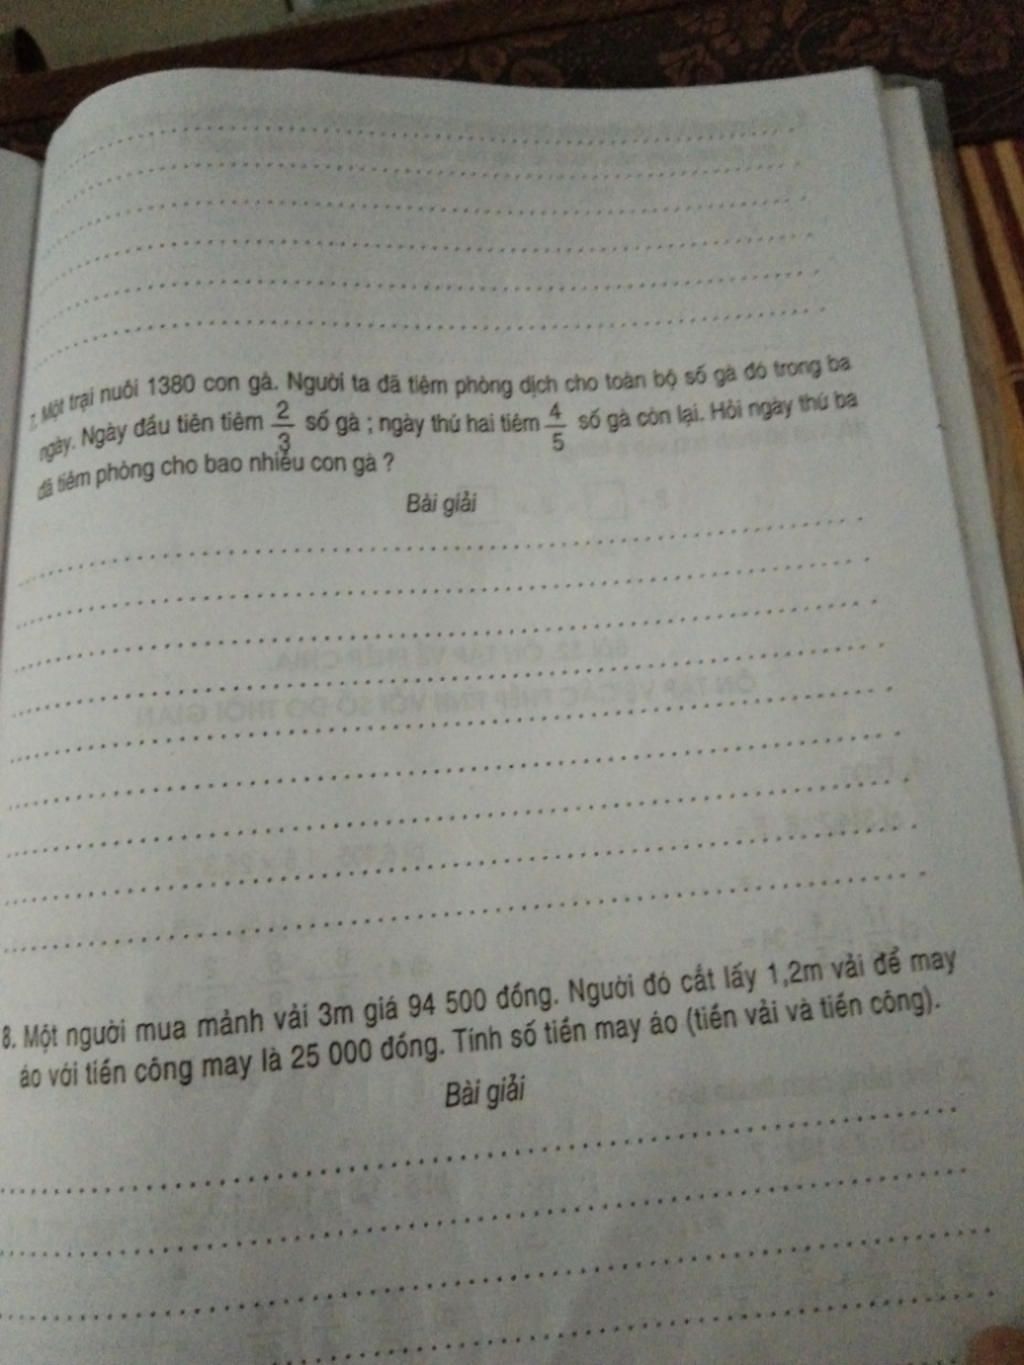 7. Một trại nuôi 1380 con gà. Người ta đã tiêm phòng dịch cho toàn bộ số gà đó trong ba
ngày. Ngày đầu tiên tiêm 2/3 số gà ; ngày thứ hai tiêm 4/5 số gà còn lại. Hỏi ngày thứ ba
đã tiêm phòng cho bao nhiêu con gà ?
Bài giải
8. Một người mua mảnh vải 3m giá 94 500 đồng. Người đó cắt lấy 1,2m vải để may
áo với tiền công may là 25 000 đồng. Tính số tiền may áo (tiền vải và tiền công).
Bài giải